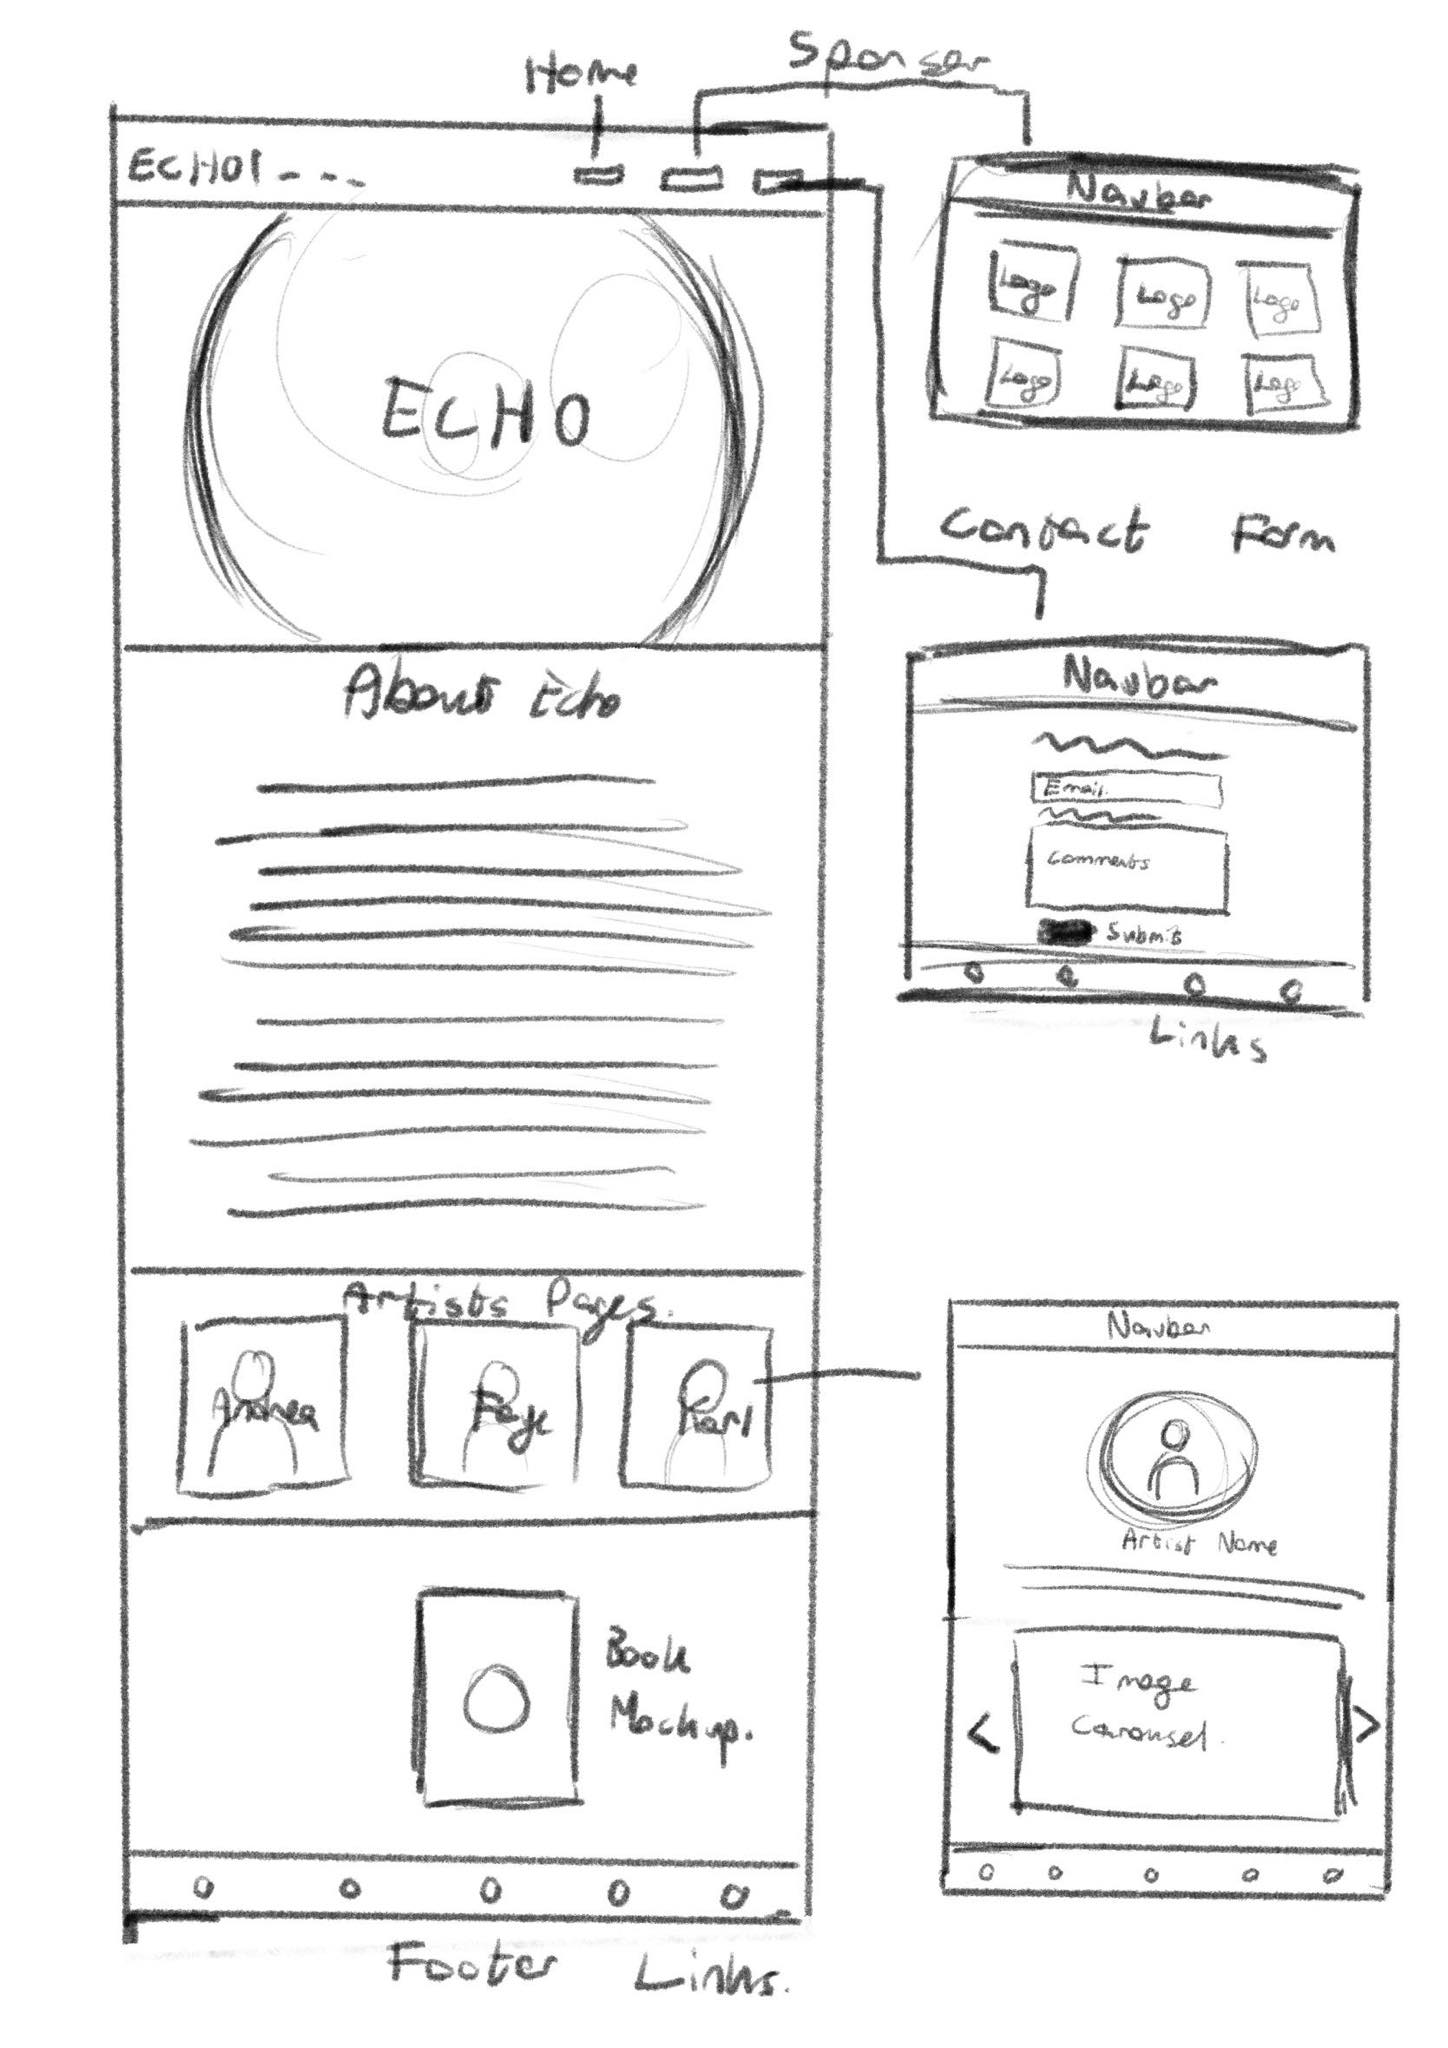 Home
Sponser
ECHO1---
ECHO
About Echo
Artists Pages.
Andrea
Faye
Karl
Book
Mockup.
Footer Links.
Navbar
Logo Logo Logo
Logo Logo Logo
Contact Form
Navbar
Email.
Comments
Submit
Links
Navbar
Artist Name
Image
Carousel.
< >